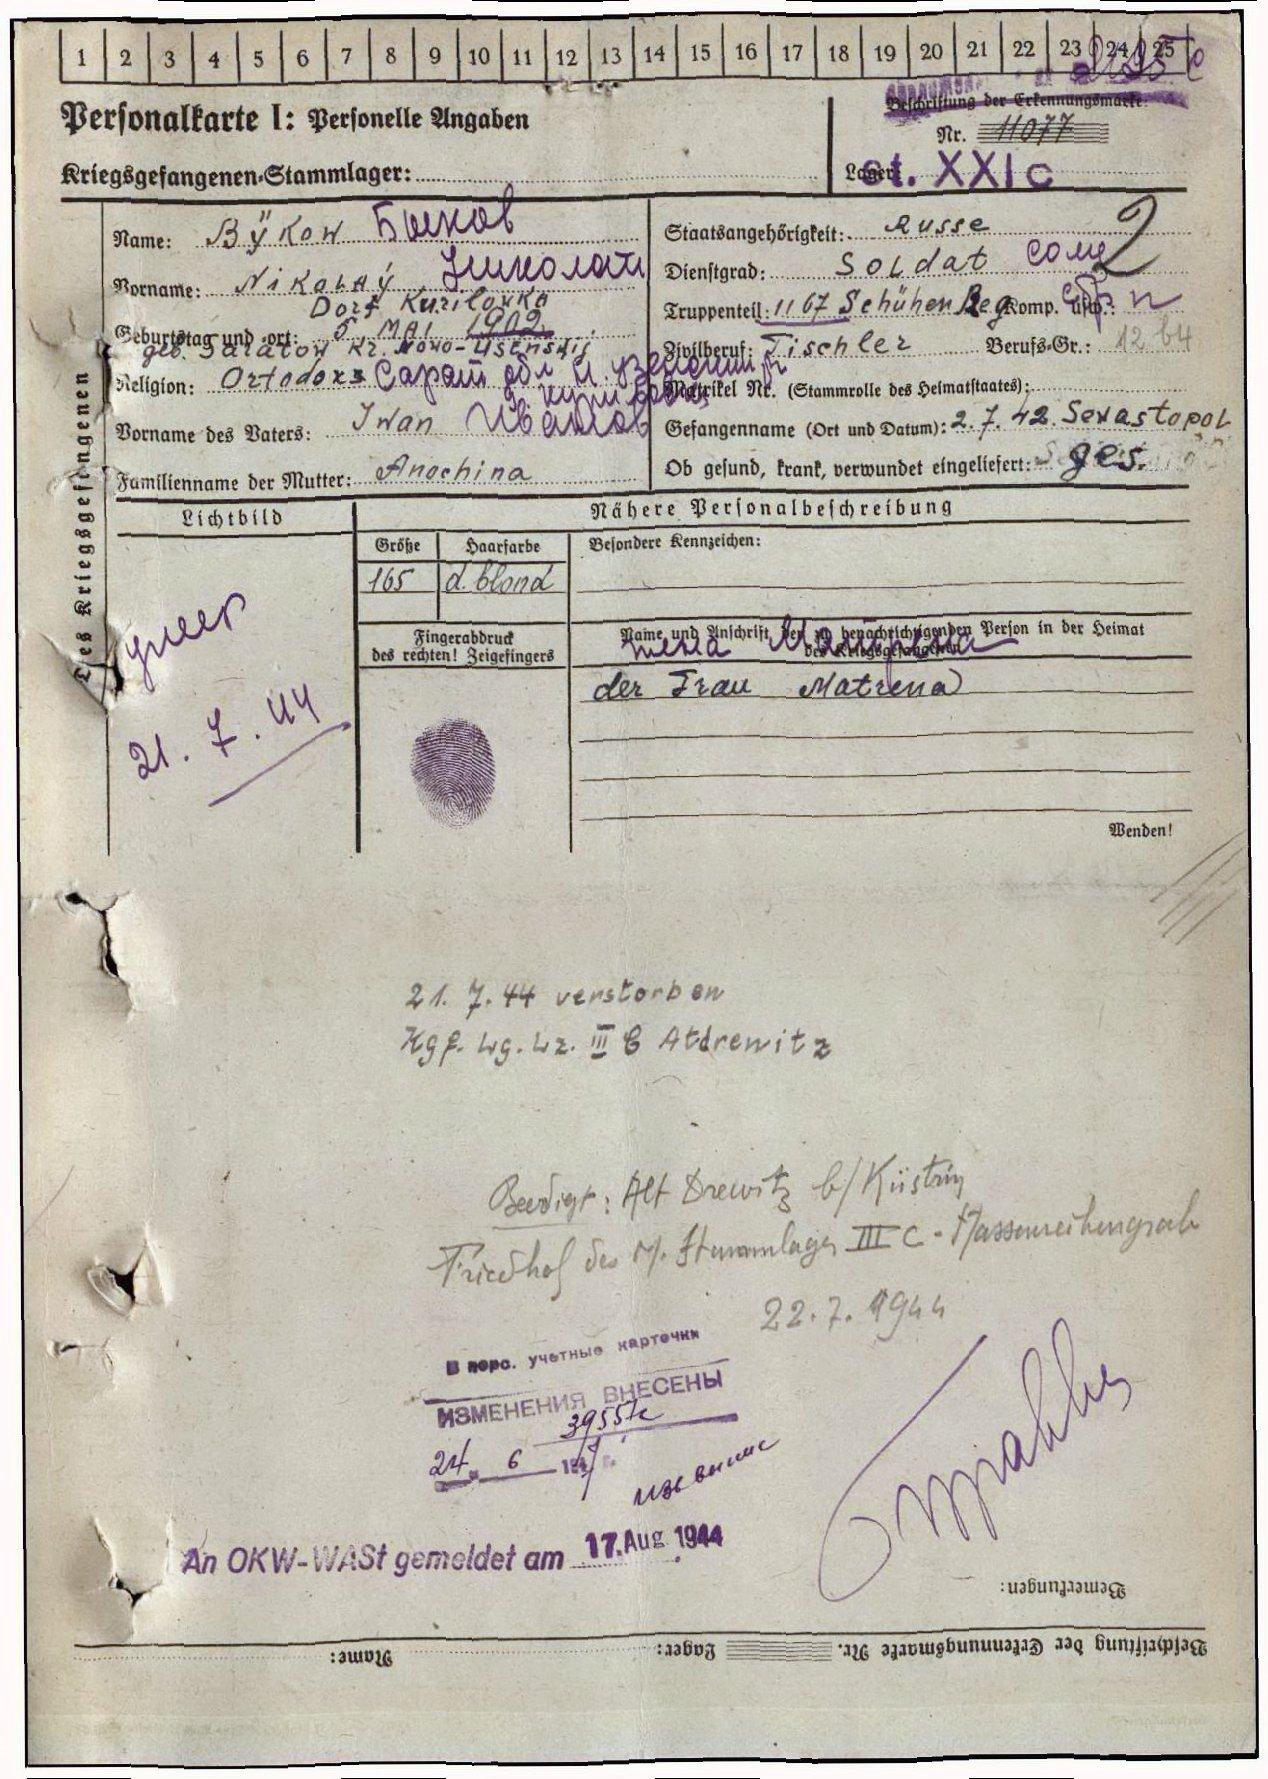 1 2 3 4 5 6 7 8 9 10 11 12 13 14 15 16 17 18 19 20 21 22 23 24 25
Personalkarte I: Personelle Angaben
Beschriftung der Erkennungsmarke:
Nr. 11077
Kriegsgefangenen-Stammlager:
Lager: St. XXI C
Des Kriegsgefangenen
Name: Bÿkow Быков
Vorname: Nikolaÿ Николай
Dorf Kurilowka
Geburtstag und -ort: 5. MAI 1902.
geb. Saratow Kr. Nowo-Usenskij
Religion: Ortodoxs Сарат обл
Vorname des Vaters: Iwan Иванов
Familienname der Mutter: Anochina
Staatsangehörigkeit: Russe
2
Dienstgrad: Soldat солд
Truppenteil: 1167 Schühen Reg. Komp. usw.:
Zivilberuf: Tischler Berufs-Gr.: 12 b4
Matrikel Nr. (Stammrolle des Heimatstaates):
Gefangenname (Ort und Datum): 2.7.42. Sewastopol
Ob gesund, krank, verwundet eingeliefert: ges.
Lichtbild
Nähere Personalbeschreibung
Größe Haarfarbe Besondere Kennzeichen:
165 d. blond
Fingerabdruck
des rechten! Zeigefingers
Name und Anschrift der zu benachrichtigenden Person in der Heimat
des Kriegsgefangenen
жена Матрена
der Frau Matrena
умер
21.7.44
Wenden!
21. 7. 44 verstorben
Kgf. Lg. Lz. III C Atdrewitz
Beerdigt: Alt Drewitz b/Küstrin
Friedhof des M. Stammlager III C - Massenreihengrab
22.7.1944
В перс. учетные карточки
ИЗМЕНЕНИЯ ВНЕСЕНЫ
24. 6
An OKW-WASt gemeldet am 17. Aug 1944
Bemerkungen:
Beschriftung der Erkennungsmarke Nr. Lager: Name: